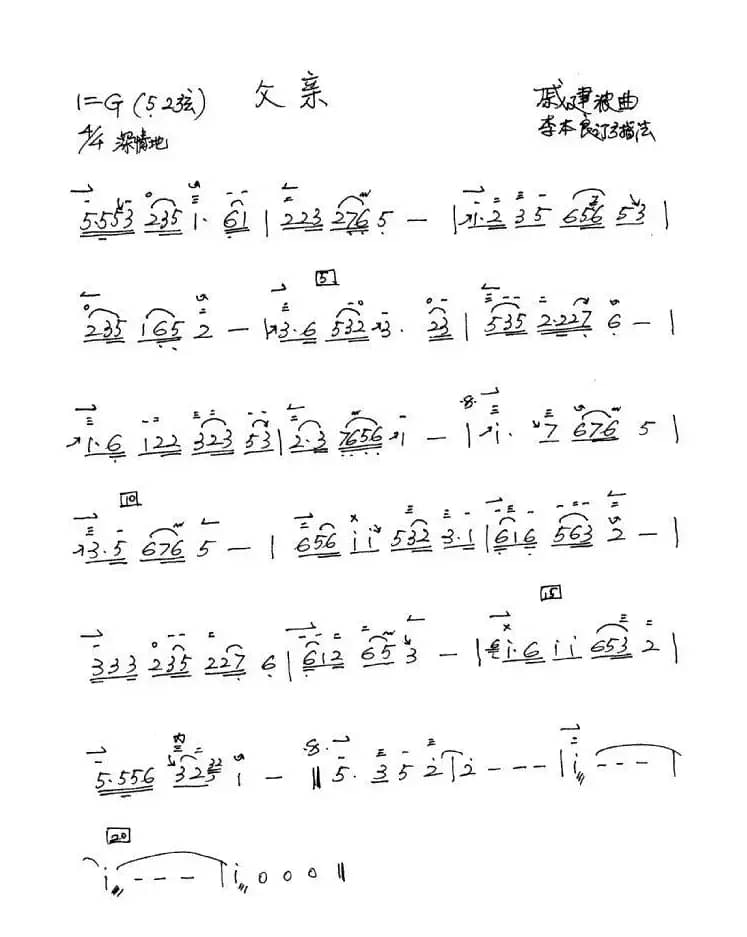 父亲
1=G (5 2弦)
戚建波曲
4/4 深情地
李本良订弓指法
5·553 235 1· 61 | 223 276 5 — | 1·2 35 656 53 |
235 165 2 — | 3·6 532 3· 23 | 535 2·227 6 — |
5
1·6 122 323 53 | 2·3 7656 1 — | i· 7 676 5 |
8
10
3·5 676 5 — | 656 ii 532 3·1 | 616 563 2 — |
15
333 235 227 6 | 612 65 3 — | i·6 ii 653 2 |
内
5·556 325 1 — ‖ 5· 3 5 2 | 2 - - - | i - - - |
8
20
i - - - | i 0 0 0 ‖